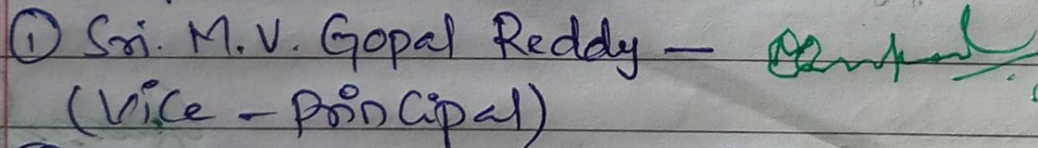 ① Sri. M.V. Gopal Reddy —
(Vice - Principal)